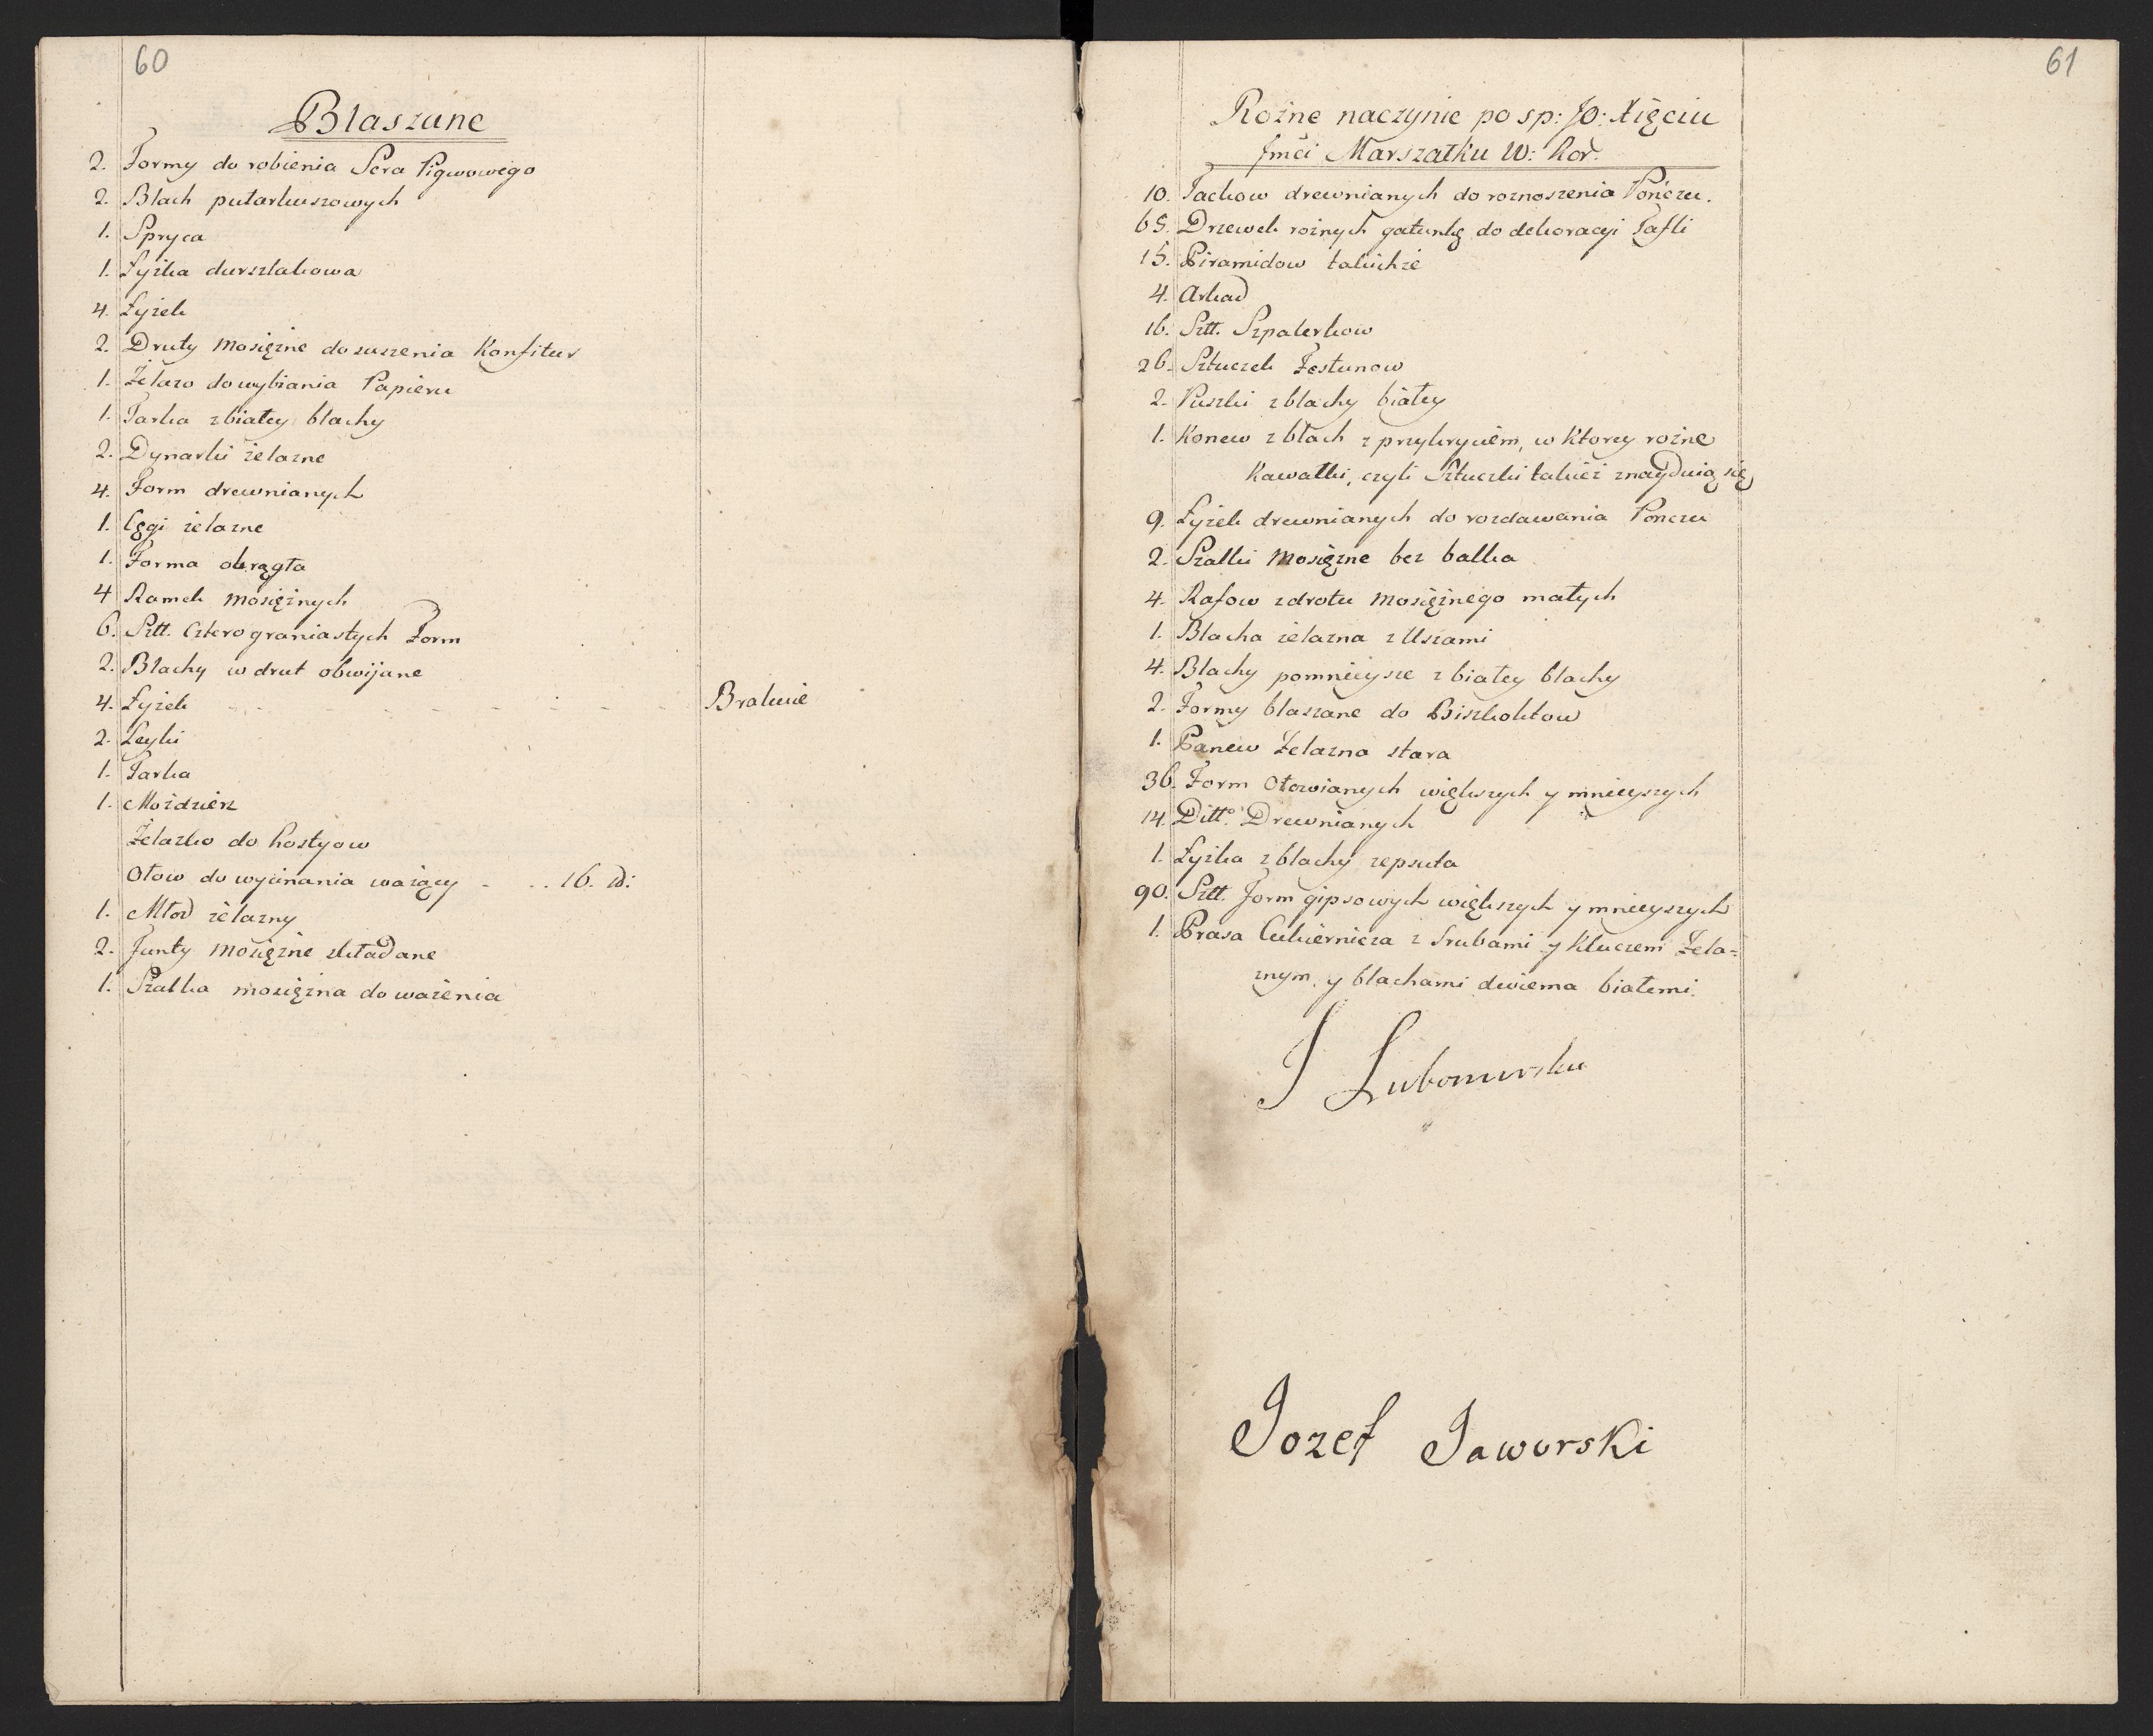 60
Blaszane
2. Formy do robienia Sera Pigwowego
2. Blach putarkuszowych
1. Spryca
1. Łyżka durszlakowa
4. Łyżek
2. Druty Mosiężne do suszenia Konfitur
1. Żelazo do wybiania Papieru
1. Tarka z białey blachy
2. Dynarki żelazne
4. Form drewnianych
1. Cęgi żelazne
1. Forma okrągła
4 Ramek mosiężnych
6. Sztt. Czterograniastych Form
2. Blachy w drut obwijane
4. Łyżek - - - - - - - - Brakuie
2. Leyki
1. Tarka
1. Możdzierz
Żelazko do hostyow
Ołow do wycinania ważący - - . 16. ℔:
1. Młot żelazny
2. Funty mosiężne składane
1. Szalka mosiężna do ważenia
61
Rożne naczynie po sp: JO: Xięciu
Jmći Marszałku W: Kor.
10. Tackow drewnianych do roznoszenia Ponczu.
65. Drzewek rożnych gatunkę do dekoracyi Tafli
15. Piramidow takichże
4. Arkad
16. Sztt. Szpalerkow
26. Sztuczek Festunow
2. Puszki z blachy białey
1. Konew z blach z przykryciem, w Ktorey rożne
Kawałki, czyli Sztuczki takież znayduią się
9. Łyżek drewnianych do rozdawania Ponczu
2. Szalki Mosiężne bez balka
4. Rafow z drotu Mosiężnego małych
1. Blacha żelazna z Uszami
4. Blachy pomnieysze z białey blachy
2. Formy blaszane do Biszkoktow
1. Panew Żelazna stara
36. Form Ołowianych większych y mnieyszych
14. Ditto. Drewnianych
1. Łyżka z blachy zepsuta
90. Sztt. Form gipsowych większych y mnieyszych
1. Prasa Cukiernicza z Srubami y Kluczem Żela=
znym, y blachami dwiema białemi.
J Lubomirska
Jozef Jaworski